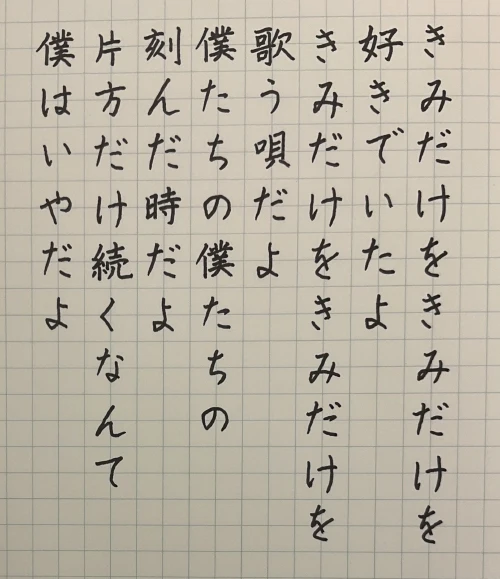 きみだけをきみだけを
好きでいたよ
きみだけをきみだけを
歌う唄だよ
僕たちの僕たちの
刻んだ時だよ
片方だけ続くなんて
僕はいやだよ